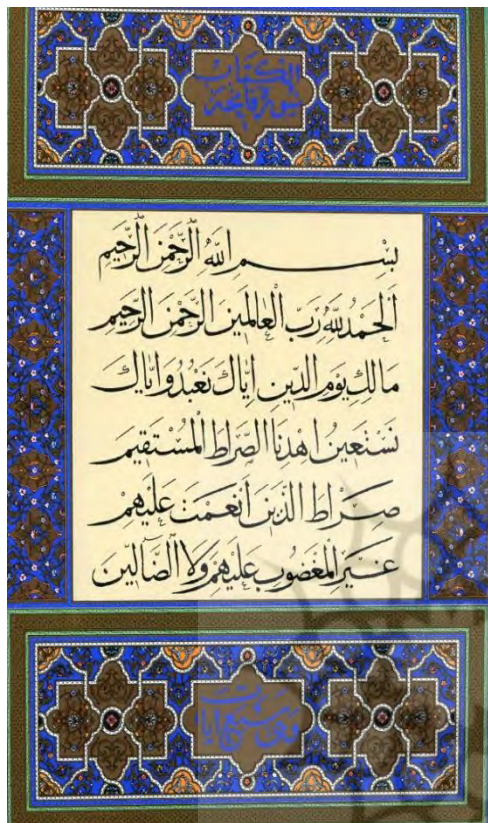 سورة فاتحة الكتاب
بِسْمِ اللهِ الرَّحْمٰنِ الرَّحِيمِ
اَلْحَمْدُ لِلّٰهِ رَبِّ الْعَالَمِينَ الرَّحْمٰنِ الرَّحِيمِ
مَالِكِ يَوْمِ الدِّينِ اِيَّاكَ نَعْبُدُ وَاِيَّاكَ
نَسْتَعِينُ اهْدِنَا الصِّرَاطَ الْمُسْتَقِيمَ
صِرَاطَ الَّذِينَ أَنْعَمْتَ عَلَيْهِمْ
غَيْرِ الْمَغْضُوبِ عَلَيْهِمْ وَلَا الضَّالِّينَ
وهي سبع آيات